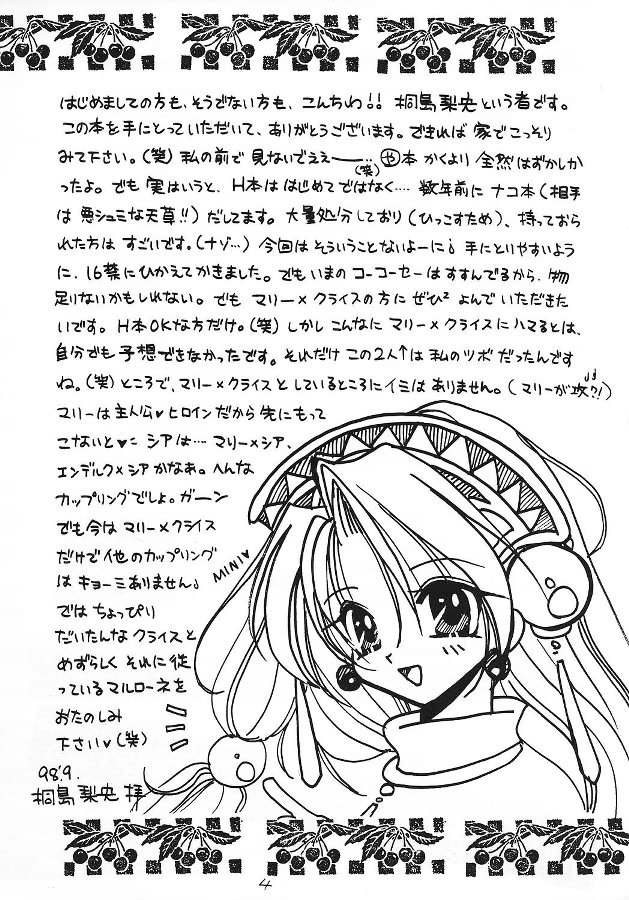 はじめましての方も、そうでない方も、こんちわ!! 桐島梨央という者です。
この本を手にとっていただいて、ありがとうございます。できれば家でこっそり
みて下さい。(笑) 私の前で見ないでええー―…(笑) や本かくより全然はずかしか
ったよ。でも実はいうと、H本ははじめてではなく…. 数年前にナコ本(相手
は悪シュミな天草!!)だしてます。大量処分しており(ひっこすため)、持っておら
れた方はすごいです。(ナゾ…) 今回はそういうことないよーに! 手にとりやすいよう
に、16禁にひかえてかきました。でもいまのコーコーセーはすすんでるから、物
足りないかもしれない。でもマリー×クライスの方にぜひ²よんでいただきた
いです。H本OKな方だけ。(笑) しかしこんなにマリー×クライスにハマるとは、
自分でも予想できなかったです。それだけこの2人↑は私のツボだったんです
ね。(笑) ところで、マリー×クライスとしているところにイミはありません。(マリーが攻?!)
マリーは主人公♥ヒロインだから先にもって
こないと♥ シアは… マリー×シア、
エンデルク×シアかなあ。へんな
カップリングでしょ。ガーン
でも今はマリー×クライス
だけで他のカップリング
はキョーミありません。
ではちょっぴり
だいたんなクライスと
めずらしくそれに従
っているマルローネを
おたのしみ
下さい♥(笑)
98'9.
桐島梨央 拝
MINI♥
4